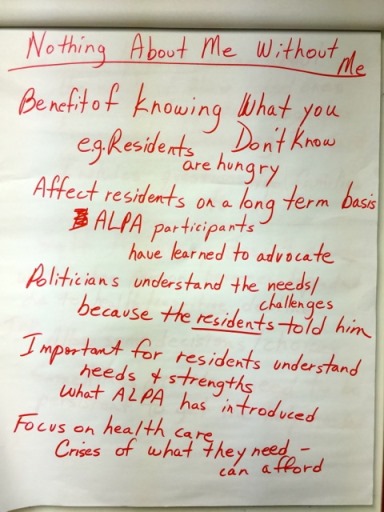 Nothing About Me Without Me
Benefit of knowing What you
Don't Know
e.g. Residents
are hungry
Affect residents on a long term basis
ALPA participants
have learned to advocate
Politicians understand the needs/
challenges
because the residents told him
Important for residents understand
needs & strengths
what ALPA has introduced
Focus on health care
Crises of what they need -
can afford